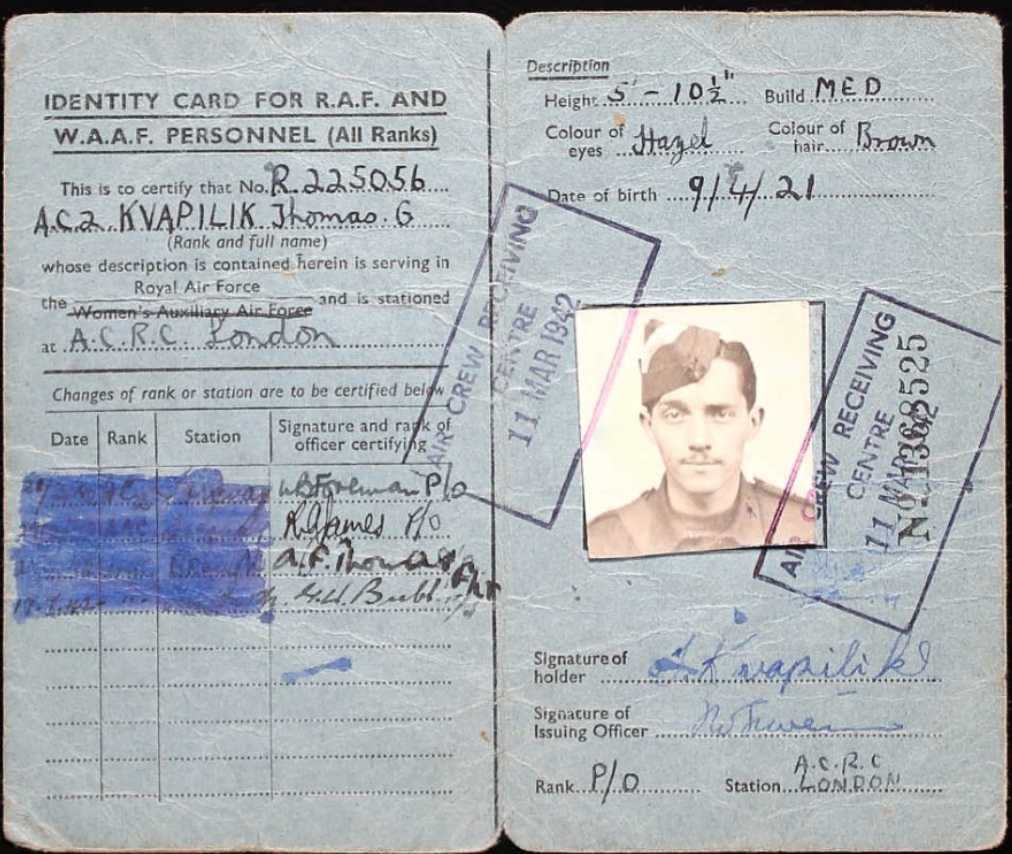 IDENTITY CARD FOR R.A.F. AND
W.A.A.F. PERSONNEL (All Ranks)
This is to certify that No. R.225056
A.C.2. KVAPILIK Thomas. G
(Rank and full name)
whose description is contained herein is serving in
Royal Air Force
the Women's Auxiliary Air Force and is stationed
at A.C.R.C. London
Changes of rank or station are to be certified below
Date Rank Station Signature and rank of officer certifying
Foreman P/O
James P/O
A.F. Thomas
Bubb
Description
Height 5' - 10 ½" Build MED
Colour of eyes Hazel Colour of hair Brown
Date of birth 9/4/21
AIR CREW RECEIVING
CENTRE
11 MAR 1942
AIR CREW RECEIVING
CENTRE
11 MAR
Signature of holder Kvapilik
Signature of Issuing Officer
Rank P/O Station A.C.R.C LONDON